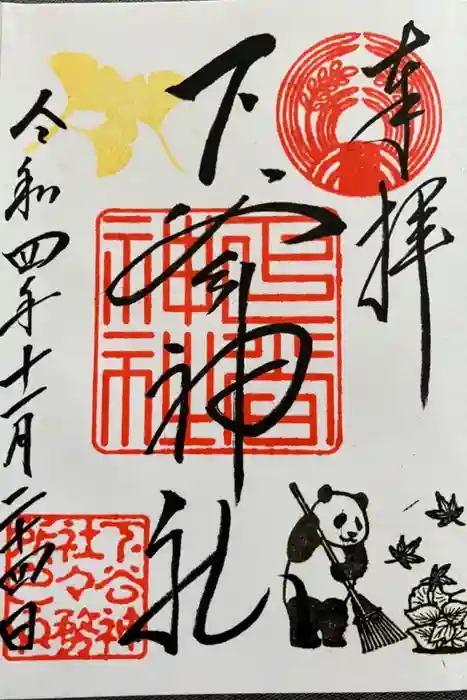 奉拝
下谷神社
下谷
神社
令和四年十一月二十四日
下谷神
社々務
所之印